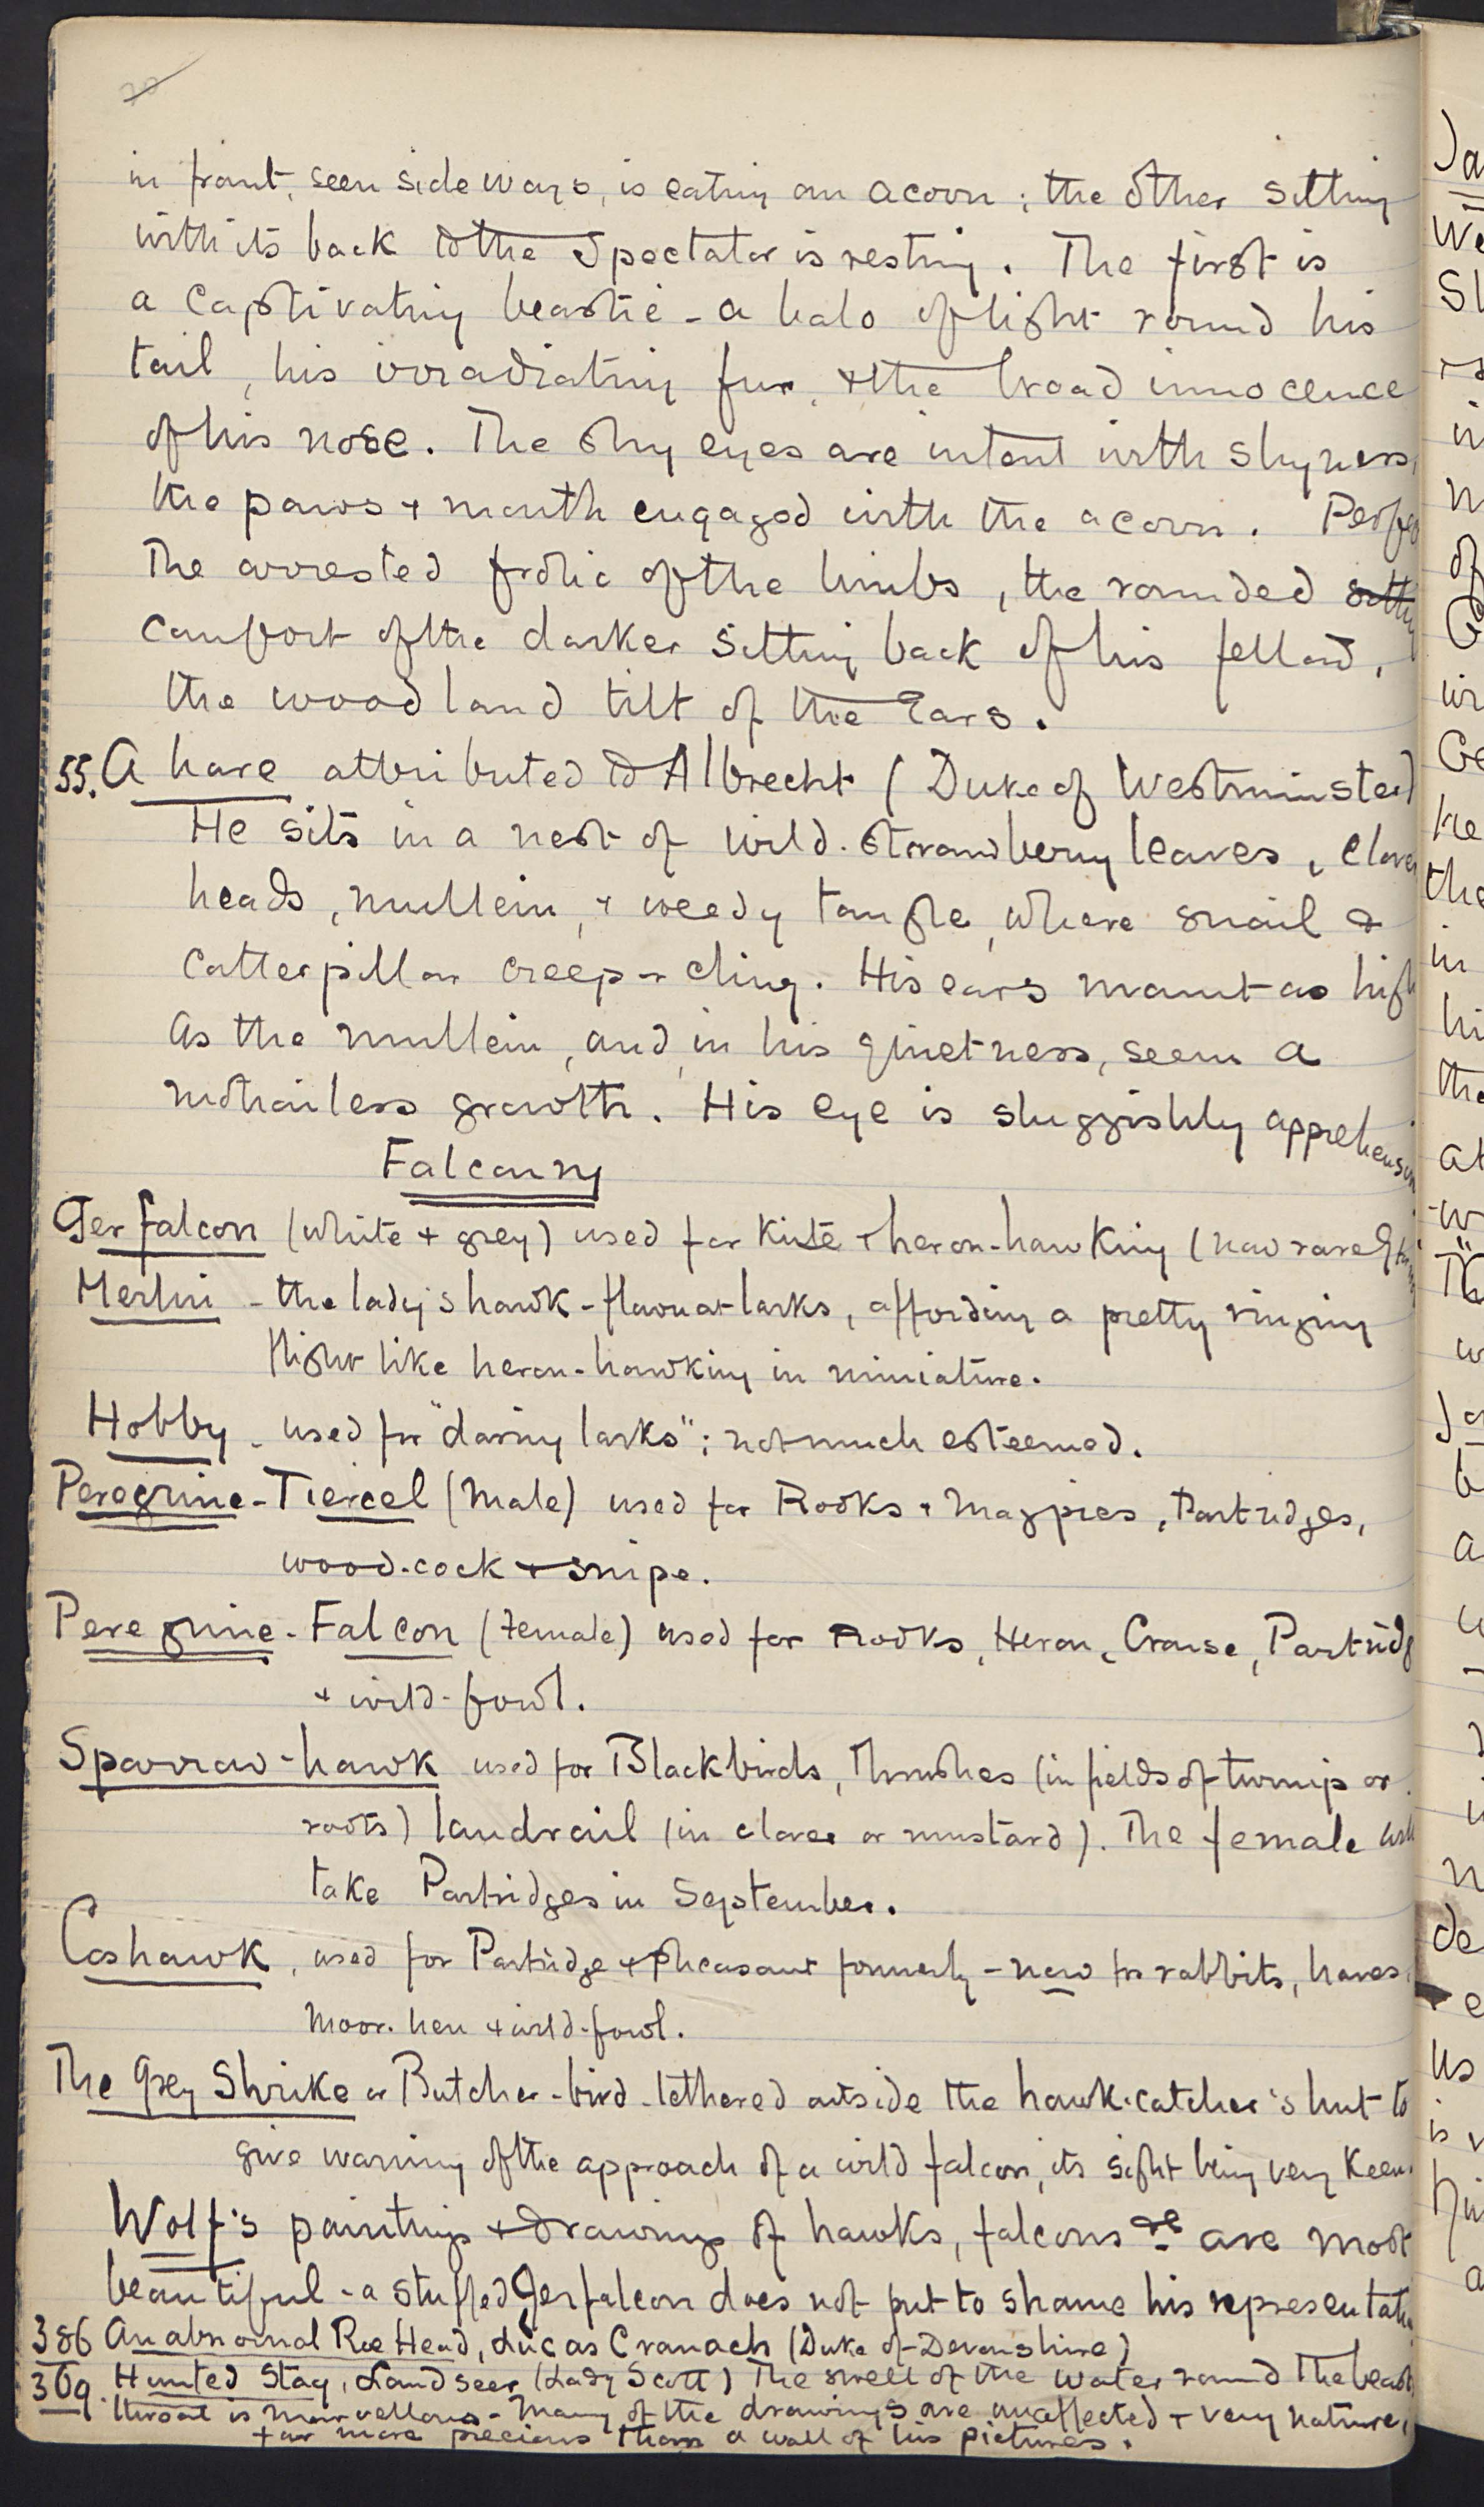 in front, seen sideways, is eating an acorn; the other sitting
with its back to the Spectator is resting. The first is
a captivating beastie - a halo of light round his
tail, his irradiating fur, & the broad innocence
of his nose. The shy eyes are intent with shyness,
the paws & mouth engaged with the acorn. Perfec
The arrested frolic of the limbs, the rounded sitting
comfort of the darker sitting back of his fellow,
the woodland tilt of the Ears.
55. A hare attributed to Albrecht (Duke of Westminster)
He sits in a nest of wild-strawberry leaves, clover
heads, mullein, & weedy tangle, where snail &
catterpillar creep & cling. His ears mount as high
as the mullein, and, in his quietness, seem a
motionless growth. His eye is sluggishly apprehensive
Falconry
Gerfalcon (white & grey) used for Kite & heron-hawking (now rare
Merlin - the lady's hawk - flown at larks, affording a pretty ringing
flight like heron-hawking in miniature.
Hobby - used for "daring larks"; not much esteemed.
Peregrine - Tiercel (Male) used for Rooks & Magpies, Partridges,
wood-cock & snipe.
Peregrine - Falcon (female) used for Rooks, Heron, Grouse, Partridg
& wild-fowl.
Sparrow-hawk used for Blackbirds, Thrushes (in fields of turnip or
roots) landrail (in clover or mustard). The female will
take Partridges in September.
Goshawk, used for Partridge & Pheasant formerly - now for rabbits, hares,
Moor-hen & wild-fowl.
The Grey Shrike or Butcher-bird - tethered outside the hawk-catcher's hut to
give warning of the approach of a wild falcon, its sight being very Keen.
Wolf's paintings & drawings of hawks, falcons &c are most
beautiful - a stuffed Gerfalcon does not put to shame his representati
386 An abnormal Roe Head, Lucas Cranach (Duke of Devonshire)
369. Hunted Stag, Landseer (Lady Scott) The swell of the water round the beast's
throat is marvellous - Many of the drawings are unaffected & very nature,
far more precious than a wall of his pictures.